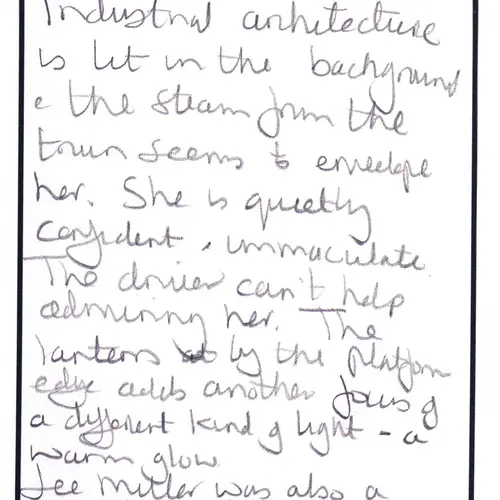 Industrial architecture
is lit in the background
& the steam from the
town seems to envelope
her. She is quietly
confident, immaculate.
The driver can't help
admiring her. The
lantern by the platform
edge adds another focus of
a different kind of light - a
warm glow.
Lee Miller was also a